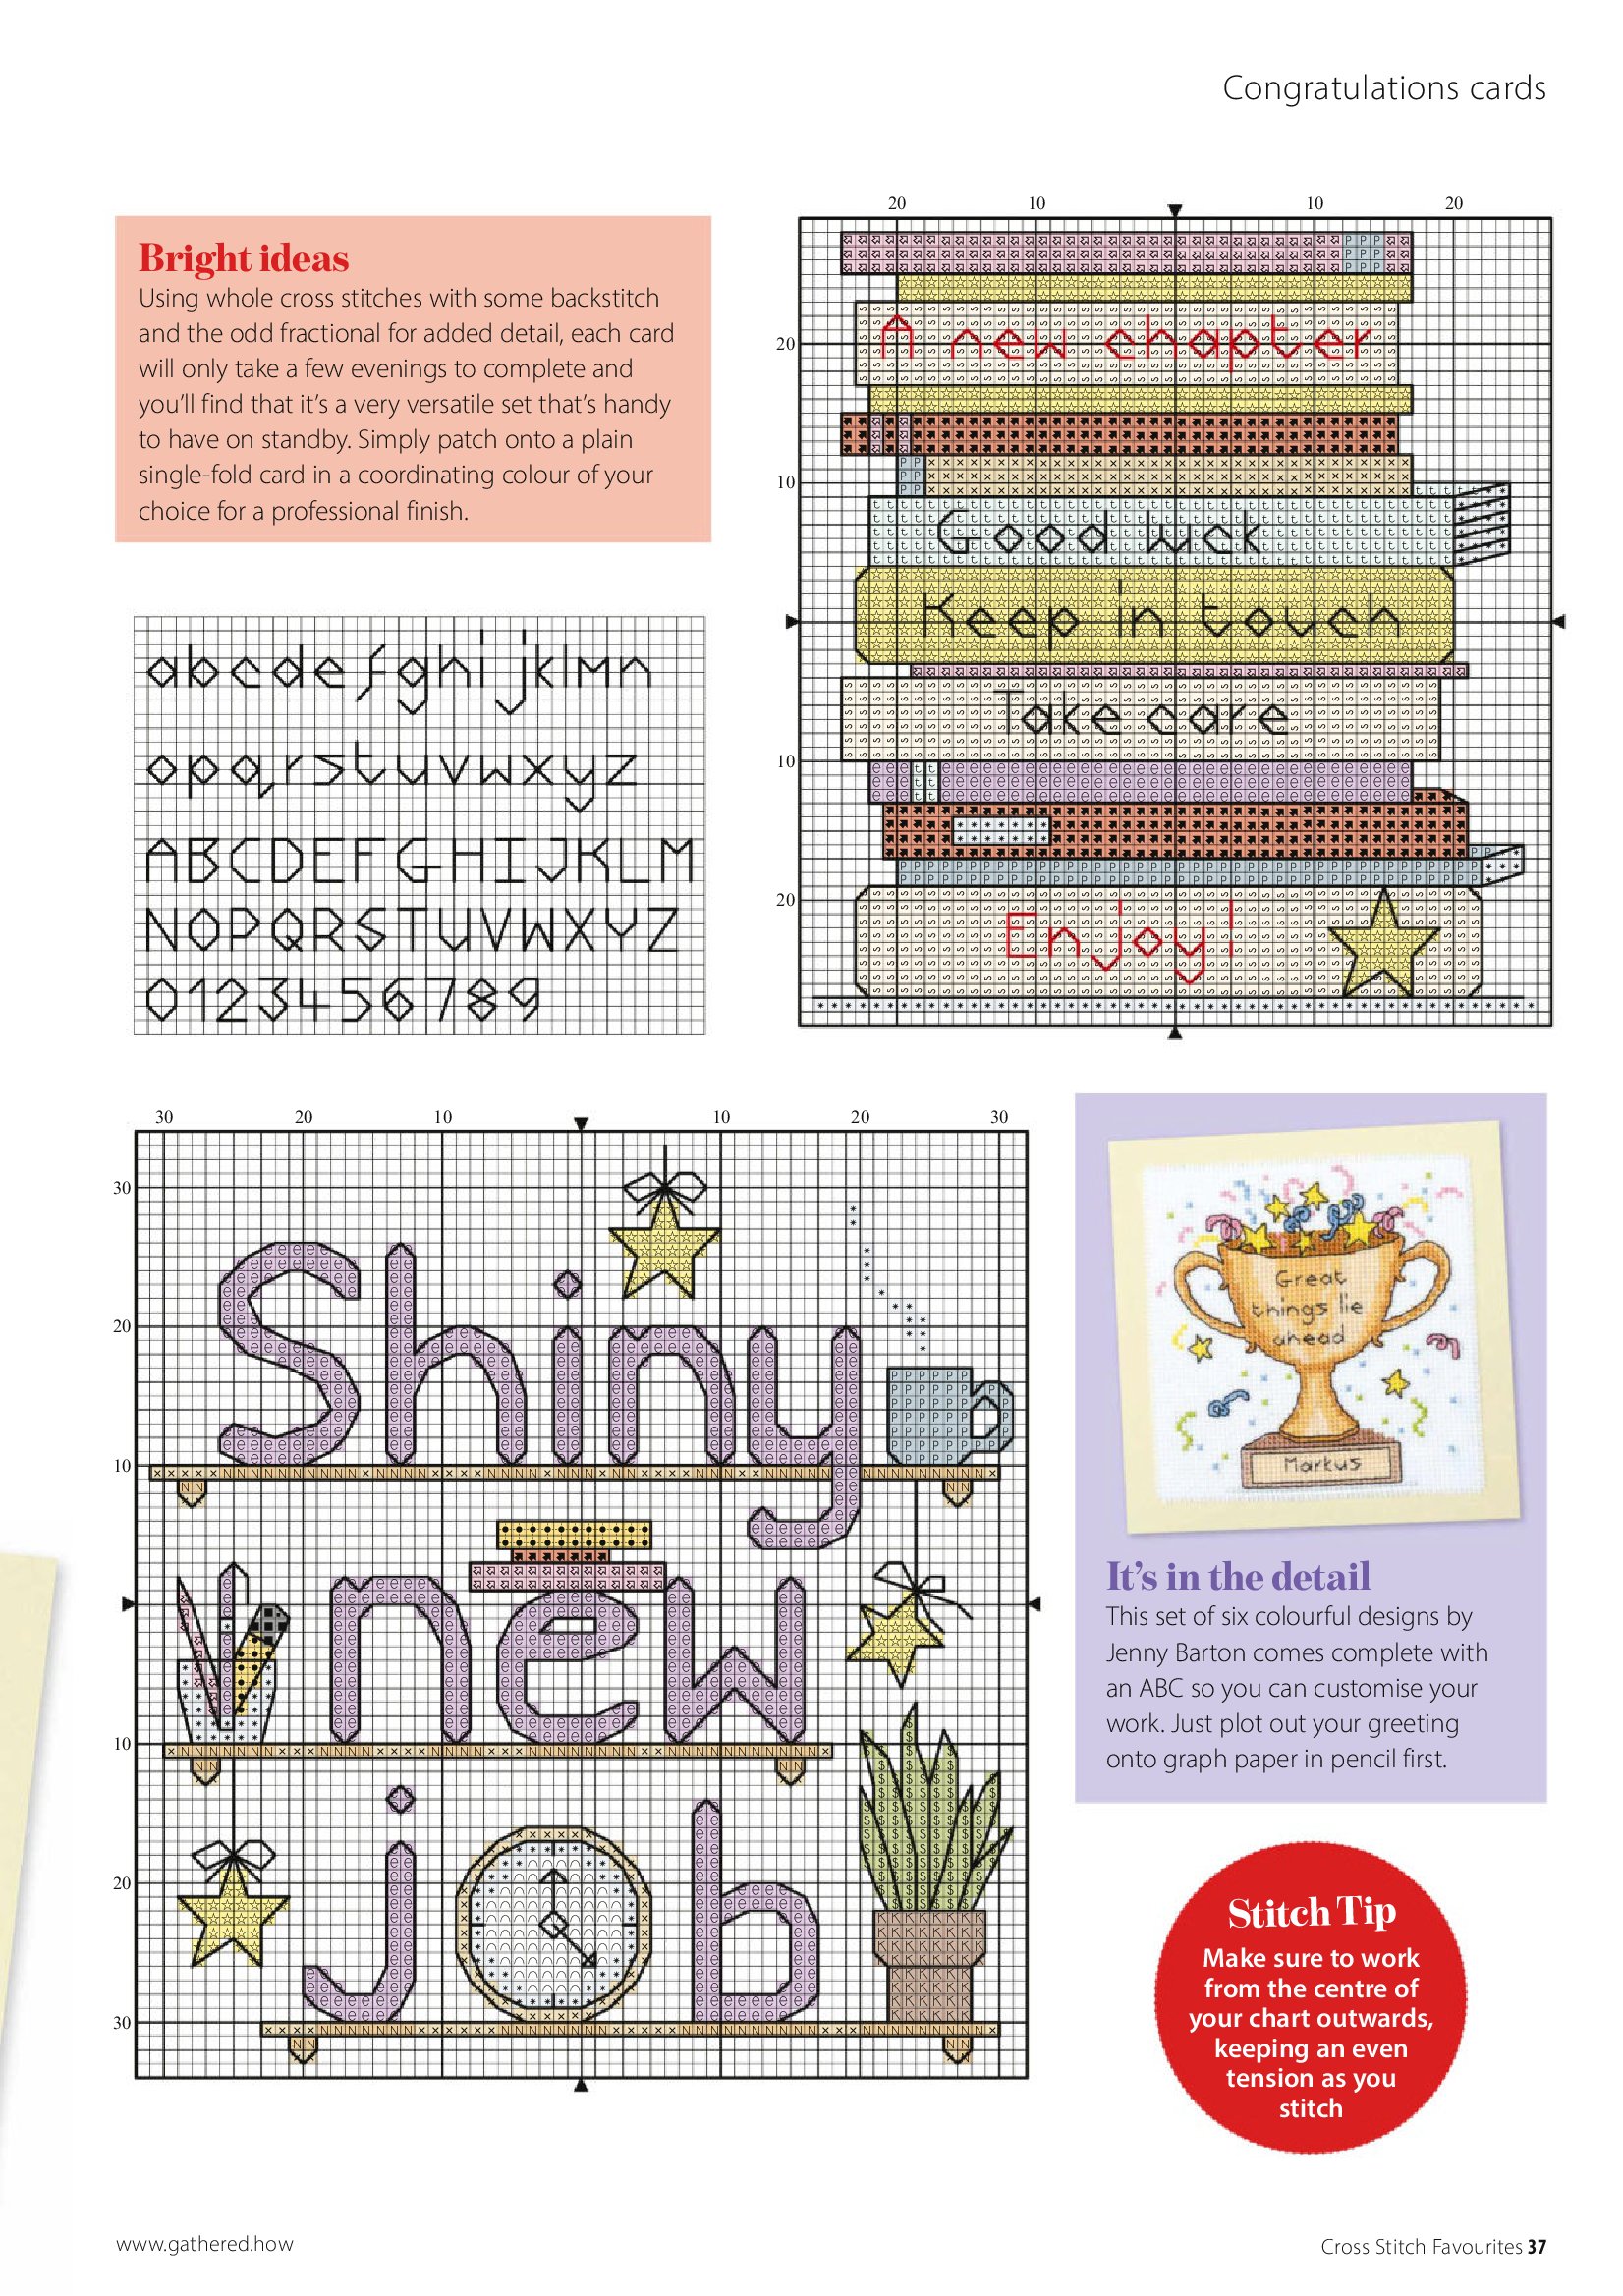 Congratulations cards
Bright ideas
Using whole cross stitches with some backstitch
and the odd fractional for added detail, each card
will only take a few evenings to complete and
you'll find that it's a very versatile set that's handy
to have on standby. Simply patch onto a plain
single-fold card in a coordinating colour of your
choice for a professional finish.
abcdefghijklmn
opqrstuvwxyz
ABCDEFGHIJKLM
NOPQRSTUVWXYZ
0123456789
20 10 10 20
20
10
10
20
A new chapter
Good luck
Keep in touch
Take care
Enjoy!
30 20 10 10 20 30
30
20
10
10
20
30
Shiny
new
job
Great
things lie
ahead
Markus
It's in the detail
This set of six colourful designs by
Jenny Barton comes complete with
an ABC so you can customise your
work. Just plot out your greeting
onto graph paper in pencil first.
Stitch Tip
Make sure to work
from the centre of
your chart outwards,
keeping an even
tension as you
stitch
www.gathered.how
Cross Stitch Favourites 37